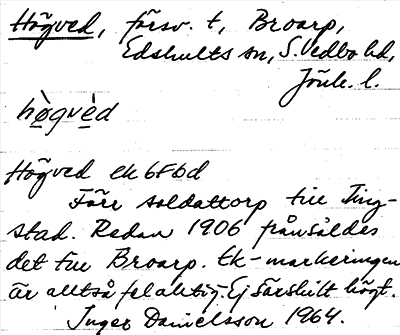 Högved, försv. t, Broarp,
Edshults sn, S. Vedbo hd,
Jönk. l.
hògvèd
Högved ek 6F6d
Förr soldattorp till Ting-
stad. Redan 1906 frånsåldes
det till Broarp. Ek-markeringen
är alltså felaktig. Ej särskilt högt.
Inger Danielsson 1964.